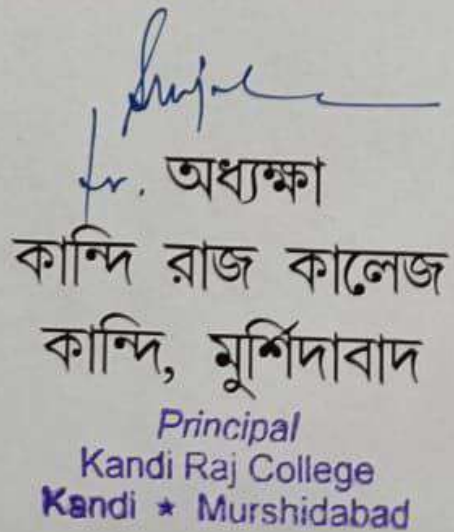 fr. অধ্যক্ষা
কান্দি রাজ কালেজ
কান্দি, মুর্শিদাবাদ
Principal
Kandi Raj College
Kandi ★ Murshidabad